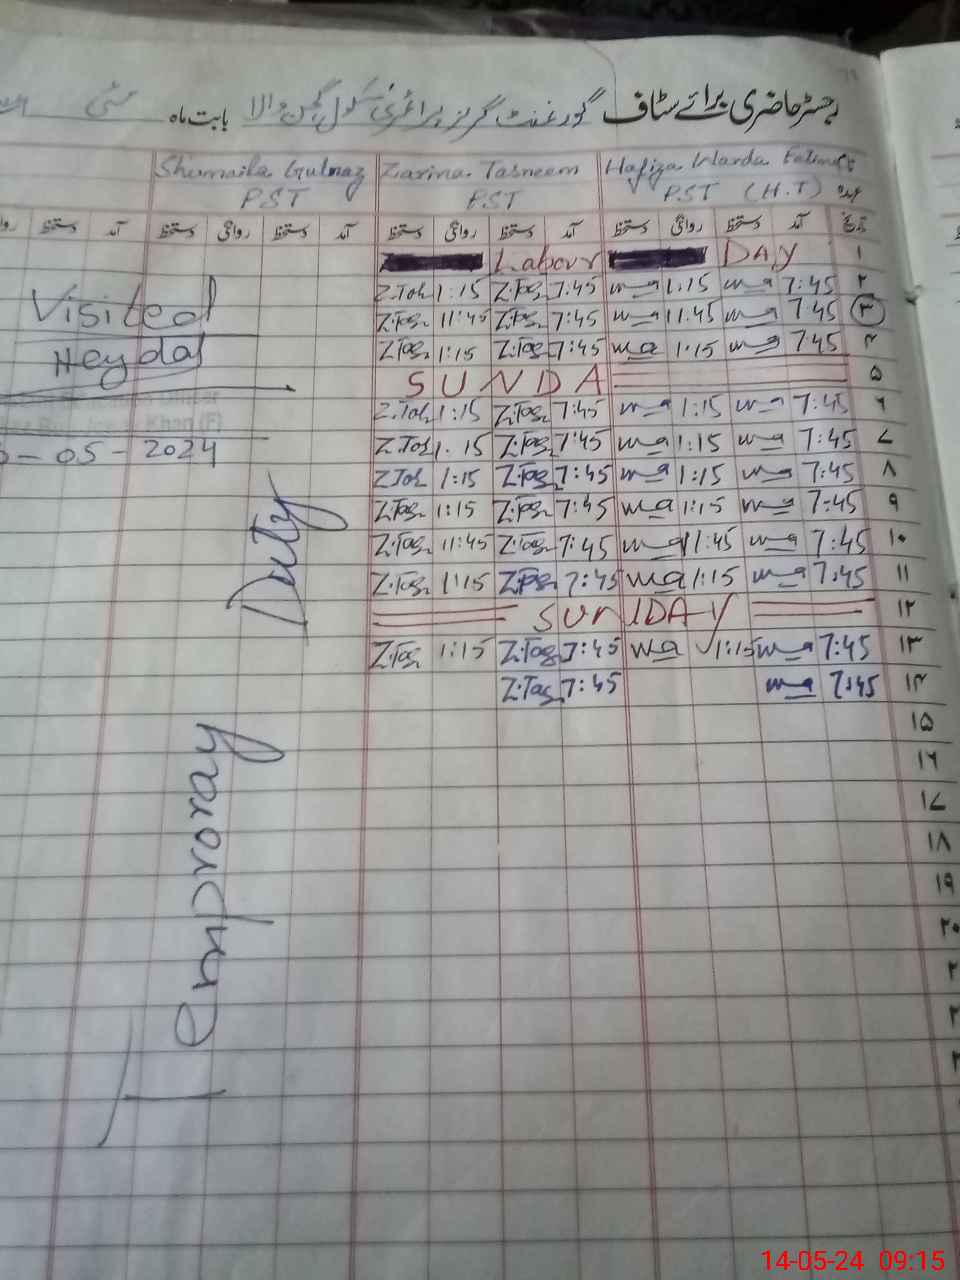 رجسٹر حاضری برائے سٹاف گورنمنٹ گرلز پرائمری سکول والا بابت ماہ مئی
Shumaila Gulnaz Zarina Tasneem Hafiza Warda Fatima
PST PST PST (H.T) عہدہ
آمد دستخط روانگی دستخط آمد دستخط روانگی دستخط آمد دستخط روانگی دستخط تاریخ
Labour DAY ۱
Z.Tas 1:15 Z.Tas 7:45 1:15 7:45 ۲
Z.Tas 11:45 Z.Tas 7:45 11:45 7:45 ۳
Z.Tas 1:15 Z.Tas 7:45 1:15 7:45 ۴
SUNDA ۵
Z.Tas 1:15 Z.Tas 7:45 1:15 7:45 ۶
Z.Tas 1:15 Z.Tas 7:45 1:15 7:45 ۷
Z.Tas 1:15 Z.Tas 7:45 1:15 7:45 ۸
Z.Tas 1:15 Z.Tas 7:45 1:15 7:45 ۹
Z.Tas 11:45 Z.Tas 7:45 11:45 7:45 ۱۰
Z.Tas 1:15 Z.Tas 7:45 1:15 7:45 ۱۱
SUNDAY ۱۲
Z.Tas 1:15 Z.Tas 7:45 1:15 7:45 ۱۳
Z.Tas 7:45 7:45 ۱۴
۱۵
۱۶
۱۷
۱۸
۱۹
۲۰
Visited
Khan (F)
-05-2024
Temproray Duty
14-05-24 09:15